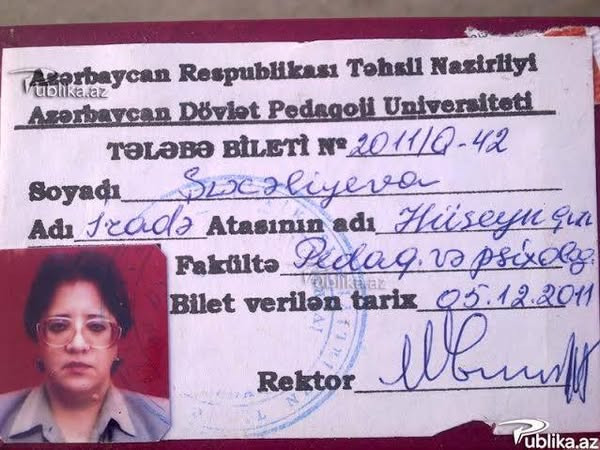 Azərbaycan Respublikası Təhsil Nazirliyi
Publika.az
Azərbaycan Dövlət Pedaqoji Universiteti
TƏLƏBƏ BİLETİ № 2011/Q-42
Soyadı Şıxəliyeva
Adı İradə Atasının adı Hüseyn qızı
Fakültə Pedaq. və psixolog.
Publika.az
Bilet verilən tarix 05.12.2011
Rektor
Publika.az